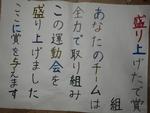 盛り上げたで賞
組
あなたのチームは
全力で取り組み
この運動会を
盛り上げました
ここに賞を与えます